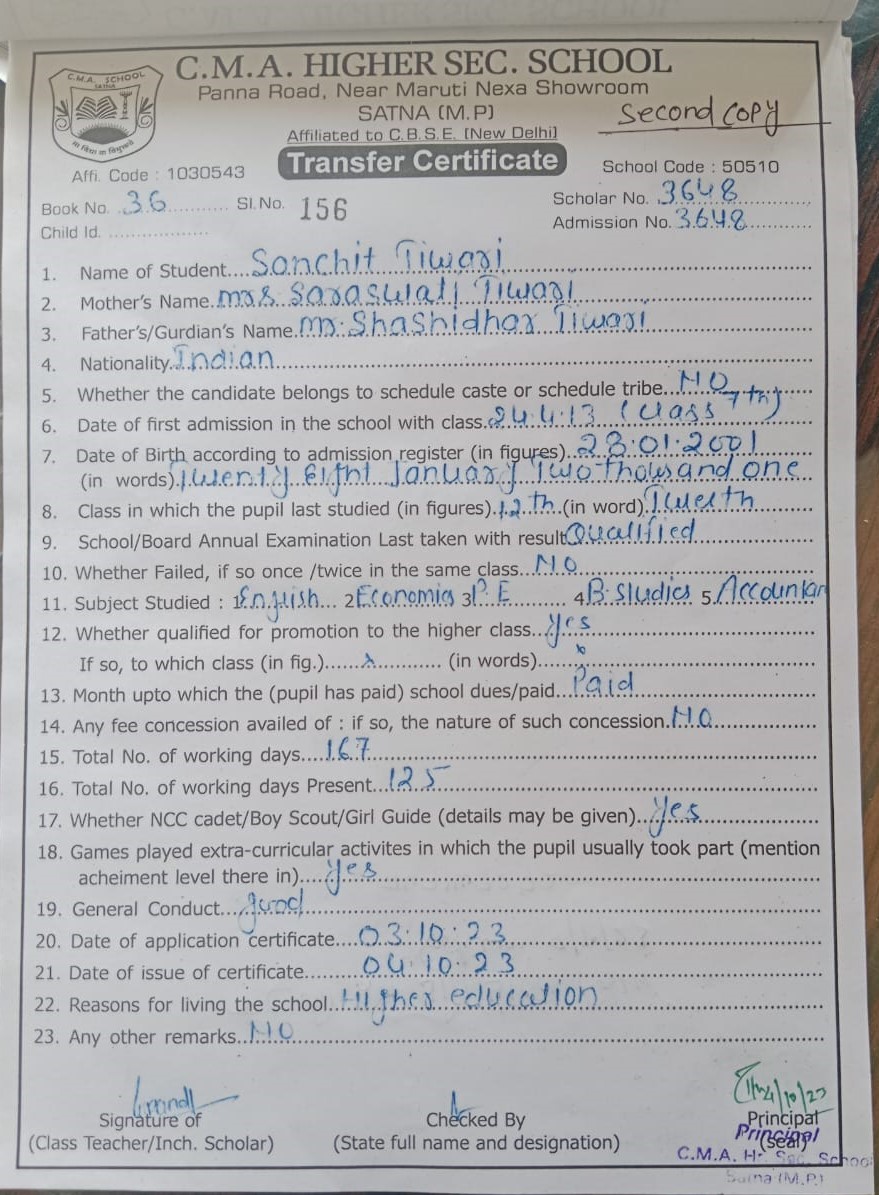 C.M.A. SCHOOL
SATNA
C.M.A. HIGHER SEC. SCHOOL
Panna Road, Near Maruti Nexa Showroom
SATNA (M.P)
Second Copy
Affiliated to C.B.S.E. (New Delhi)
Affi. Code : 1030543
Transfer Certificate
School Code : 50510
Book No. 36 Sl.No. 156
Scholar No. 3648
Child Id.
Admission No. 3648
1. Name of Student.... Sanchit Tiwari
2. Mother's Name. Mrs. Saraswati Tiwari
3. Father's/Gurdian's Name. Mr. Shashidhar Tiwari
4. Nationality. Indian
5. Whether the candidate belongs to schedule caste or schedule tribe... NO
6. Date of first admission in the school with class. 24.4.13 (Class 7th)
7. Date of Birth according to admission register (in figures).. 28.01.2001
(in words). Twenty Eight January Two thousand one
8. Class in which the pupil last studied (in figures). 12th (in word) Twelth
9. School/Board Annual Examination Last taken with result Qualified
10. Whether Failed, if so once /twice in the same class... NO
11. Subject Studied : 1. English... 2 Economics 3 P.E 4 B. Studies 5. Accountan
12. Whether qualified for promotion to the higher class.. Yes
If so, to which class (in fig.)...... x ........... (in words)... x
13. Month upto which the (pupil has paid) school dues/paid... Paid
14. Any fee concession availed of : if so, the nature of such concession. NO
15. Total No. of working days.... 167
16. Total No. of working days Present... 125
17. Whether NCC cadet/Boy Scout/Girl Guide (details may be given).. Yes
18. Games played extra-curricular activites in which the pupil usually took part (mention
acheiment level there in).... Yes
19. General Conduct... good
20. Date of application certificate.... 03.10.23
21. Date of issue of certificate........ 04.10.23
22. Reasons for living the school.. Higher education
23. Any other remarks.. NO
Signature of
(Class Teacher/Inch. Scholar)
Checked By
(State full name and designation)
Principal
(seal)
Principal
C.M.A. Hr. Sec. School
Satna (M.P.)